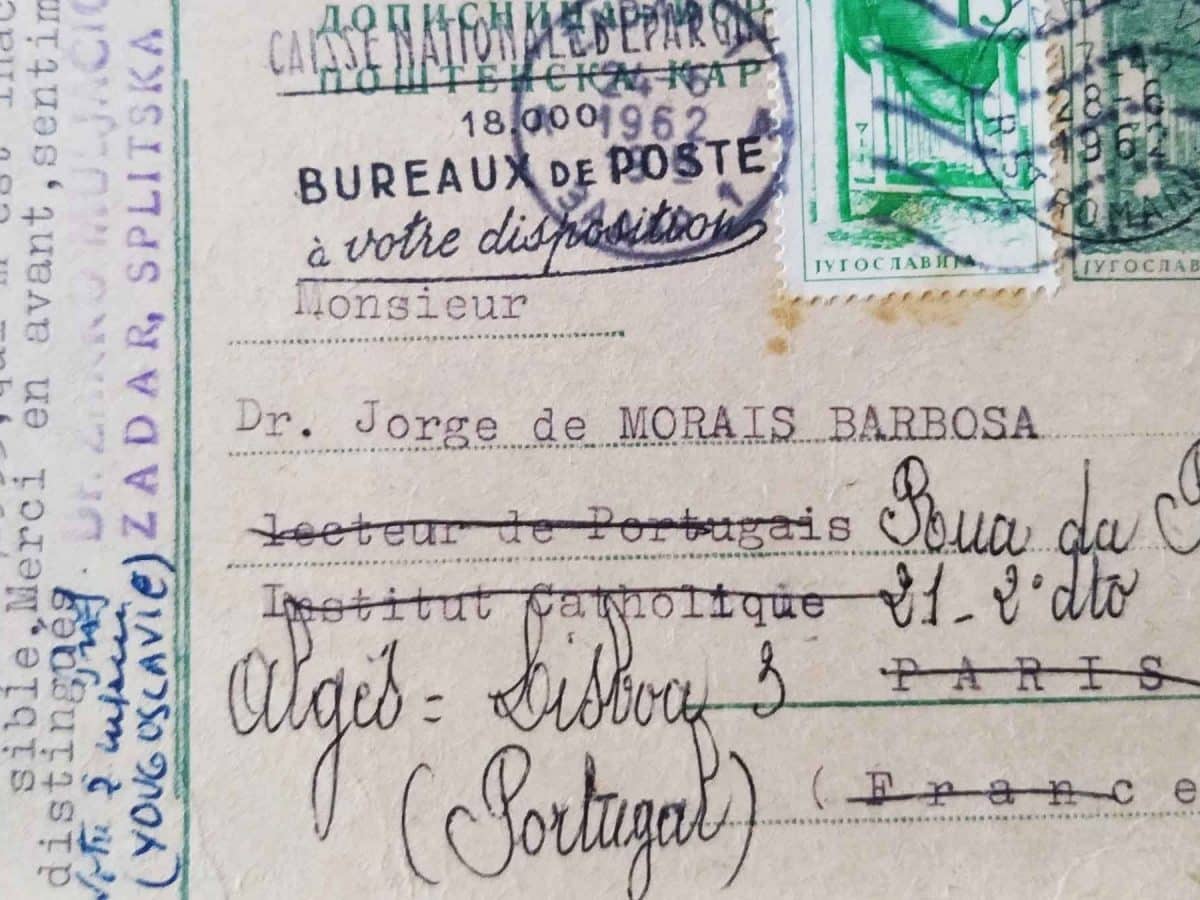 ДОПИСНИЦА
CAISSE NATIONALE D'EPARGNE
ПОШТЕНСКА КАР
24-6
18.000
1962
BUREAUX DE POSTE
à votre disposition
15
17-45
28-6
1962
ЈУГОСЛАВИЈА
ЈУГОСЛАВ
Monsieur
Dr. Jorge de MORAIS BARBOSA
lecteur de Portugais
Rua da P
Institut Catholique
21-2º dto
PARIS
Algés = Lisboa 3
(Portugal)
(France
sible, Merci en avant, sentim
distingués
Dr. ŽARKO MULJAČIĆ
ZADAR, SPLITSKA
(YOUGOSLAVIE)